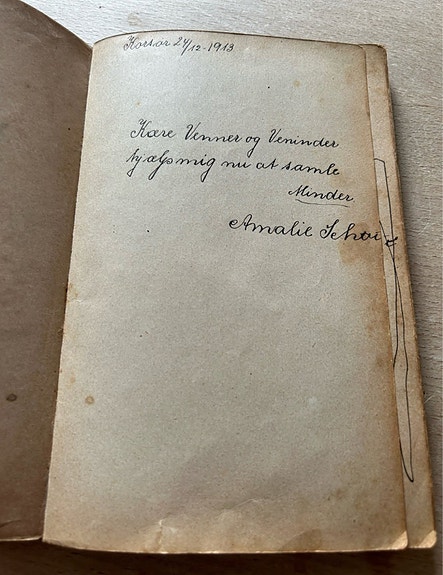 Korsør 24/12-1913
Kære Venner og Veninder
hjælp mig nu at samle
Minder
Amalie